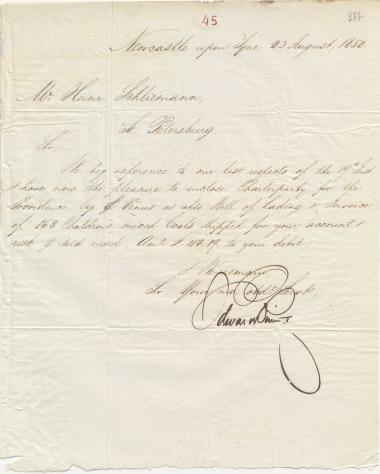 45
277
Newcastle upon Tyne 23 August, 1850
Mr Heinr. Schliemann,
St Petersburg.
Sir
We beg reference to our last respects of the 19th Inst
& have now the pleasure to inclose Charterparty for the
Providence Cap as also Bill of Lading & Invoice
of 163 Chaldrons mixed Coals shipped for your account &
risk said vessel. Amt £ 114.19. to your debit
& We remain
Sir Your most Servts,